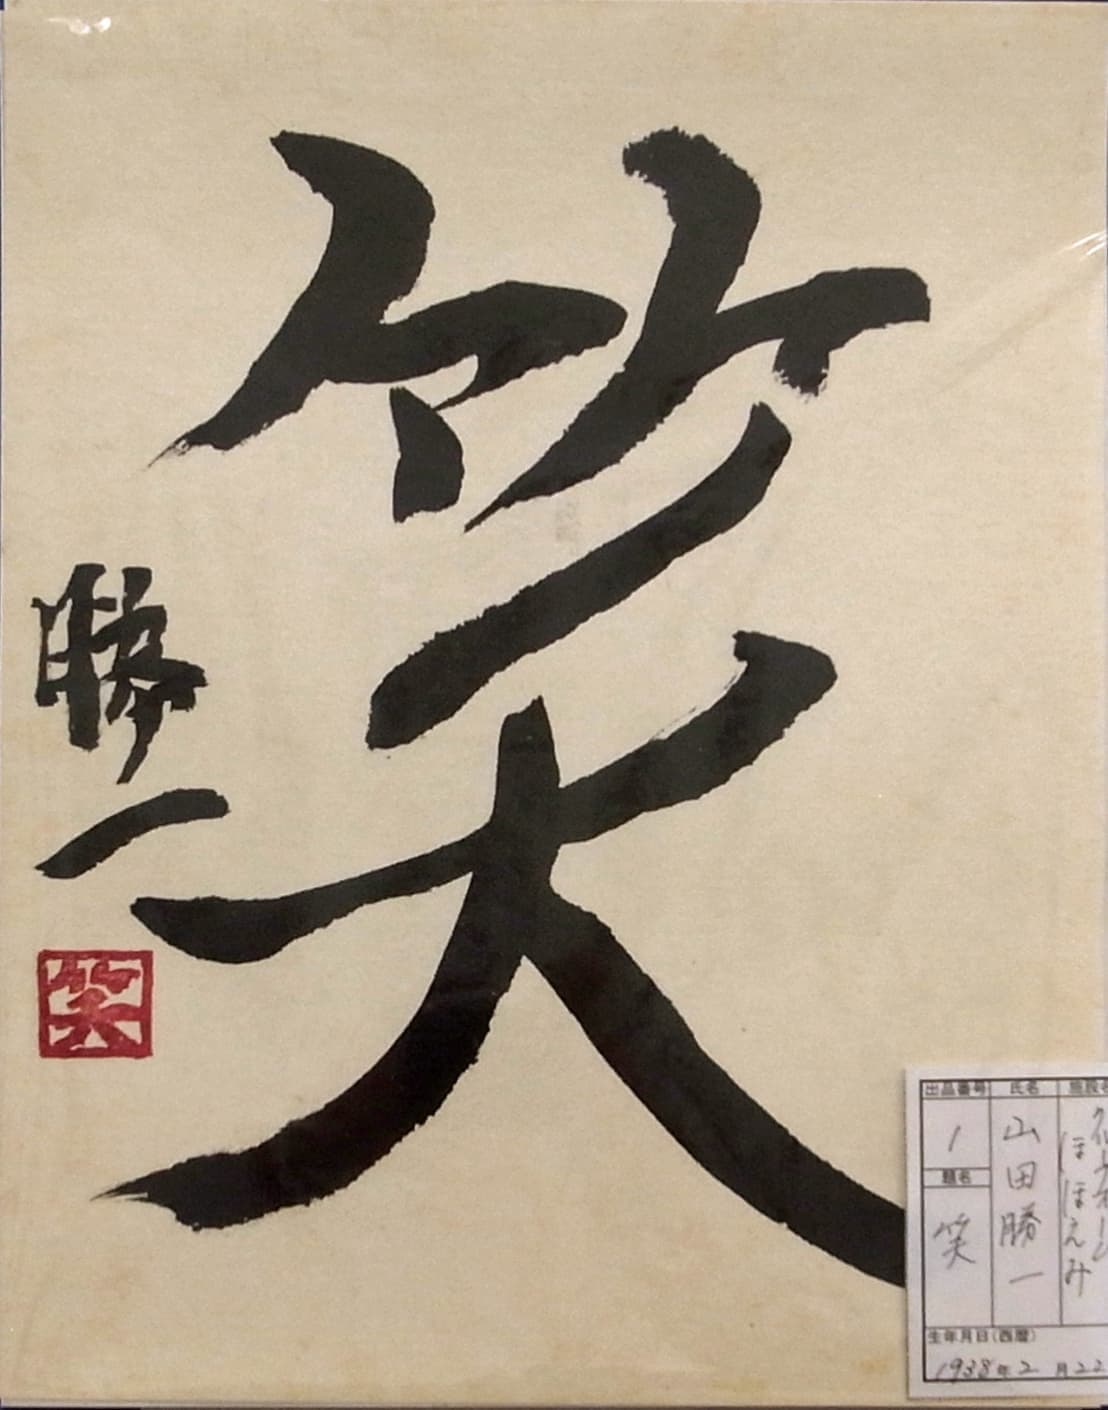 笑
勝一
笑
出品番号
1
題名
笑
氏名
山田勝一
施設名
ほほえみ
生年月日(西暦)
1938年2月22